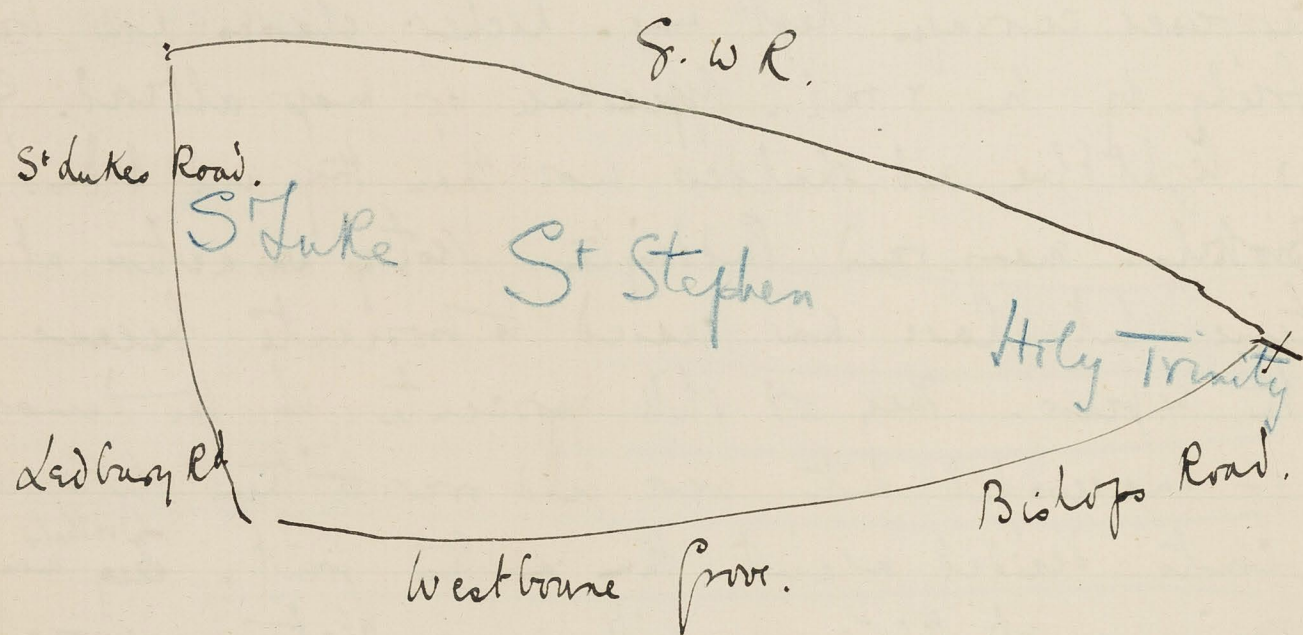 G. W R.
St Lukes Road.
St Luke
St Stephen
Holy Trinity
Ledbury Rd
Bishops Road.
Westbourne Grove.